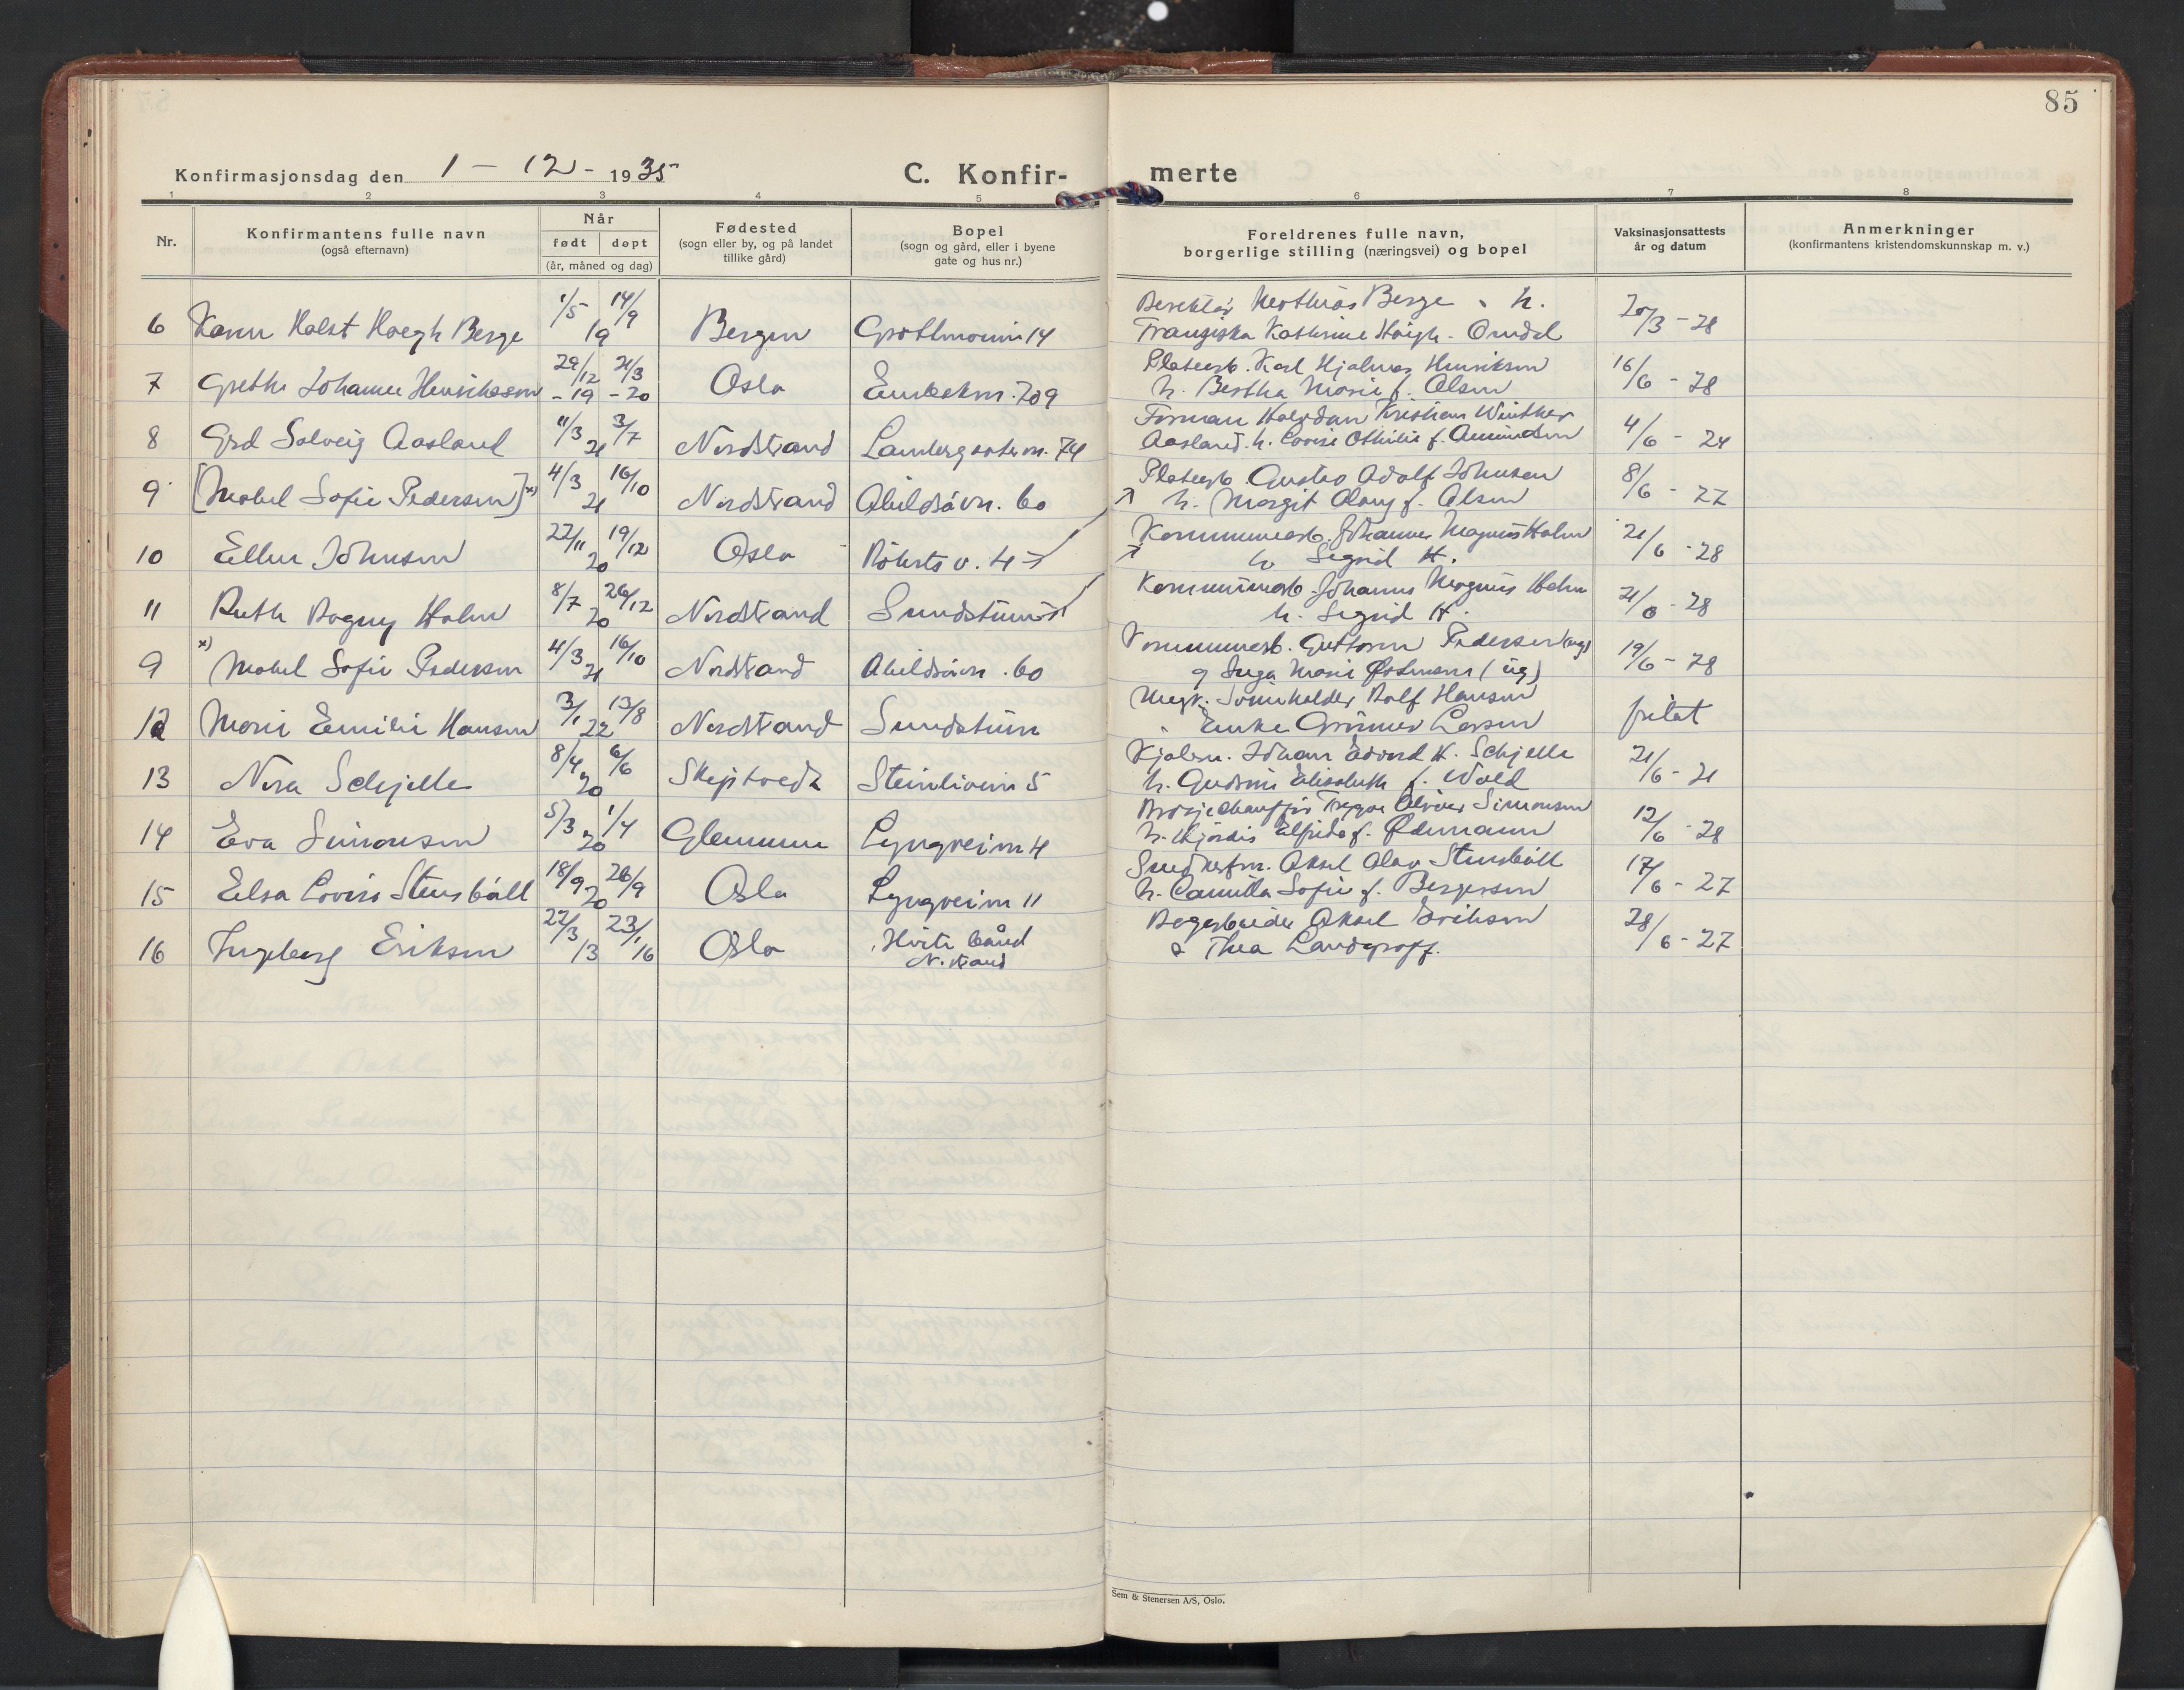 85
Konfirmasjonsdag den 1 - 12 - 1935
C. Konfir- merte
1 2 3 4 5 6 7 8
Nr.
Konfirmantens fulle navn
(også efternavn)
Når
født døpt
(år, måned og dag)
Fødested
(sogn eller by, og på landet
tillike gård)
Bopel
(sogn og gård, eller i byene
gate og hus nr.)
Foreldrenes fulle navn,
borgerlige stilling (næringsvei) og bopel
Vaksinasjonsattests
år og datum
Anmerkninger
(konfirmantens kristendomskunnskap m. v.)
Berge h.
6 Karin Holst Hoegh Berge 1/5 14/9 19 Bergen 14 Kathrine 20/3 - 28
Karl Hjalmar Henriksen
7 Grethe Johanne Henriksen 29/12 - 19 21/3 - 20 Oslo h. Bertha Marie f. Olsen 16/6 - 28
Forman Halfdan Kristian Winther
8 Grd Solveig Aasland 11/3 3/7 21 Nordstrand 74 Aasland. h. Lovise Othilie f. Amundsen 4/6 - 24
Gustav Adolf Johnsen
9 [Mabel Sofie Pedersen] x) 4/3 16/10 21 Nordstrand Abildsøvn. 60 h. Margit Olaug f. Olsen 8/6 - 27
Kommunearb. Johannes Magnus Holm
10 Ellen Johnsen 22/11 19/12 20 Oslo h. Sigrid H. 21/6 - 28
Kommunearb. Johannes Magnus Holm
11 Ruth Dagny Holm 8/7 26/12 20 Nordstrand Sundstuen h. Sigrid H. 21/6 - 28
Kommunearb. Guttorm Pedersen (ug)
9 x) Mabel Sofie Pedersen 4/3 16/10 21 Nordstrand Abildsøvn. 60 og Inga Marie Østmann (ug) 19/6 - 28
Rolf Hansen
12 Marie Emilie Hansen 3/1 13/8 22 Nordstrand Sundstuen Enke Larsen
Johan Edvard H. Schjelle
13 Nora Schjelle 8/4 6/6 20 Skiptvedt Steinliveien 5 h. Gudrun Elisabeth f. Wold 21/6 - 21
Simonsen
14 Eva Simonsen 5/3 1/4 20 Glemmen Lyngveien 4 h. Hjørdis Elfrida f. Ødemann 12/6 - 28
Aksel Olav Stensbøll
15 Elsa Lovise Stensbøll 18/9 26/9 20 Oslo Lyngveien 11 h. Camilla Sofie f. Bergersen 17/6 - 27
Aksel Eriksen
16 Ingeborg Eriksen 22/3 13 23/1 16 Oslo Hvite bånd
N. strand & Thea Landgraff. 28/6 - 27
Sem & Stenersen A/S, Oslo.